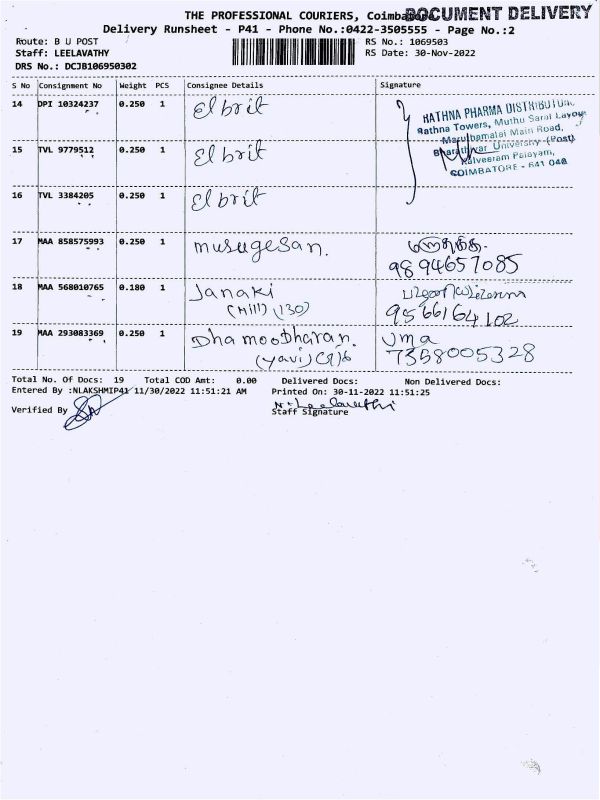 THE PROFESSIONAL COURIERS, Coimbatore
DOCUMENT DELIVERY
Delivery Runsheet - P41 - Phone No.:0422-3505555 - Page No.:2
Route: B U POST RS No.: 1069503
Staff: LEELAVATHY RS Date: 30-Nov-2022
DRS No.: DCJB106950302
S No Consignment No Weight PCS Consignee Details Signature
14 DPI 10324237 0.250 1 Elbrit
RATHNA PHARMA DISTRIBUTOR,
Rathna Towers, Muthu Saral Layout
Marudhamalai Main Road,
Bharathiyar University (Post)
Kalveeram Palayam,
COIMBATORE - 641 046
15 TVL 9779512 0.250 1 Elbrit
16 TVL 3384205 0.250 1 Elbrit
17 MAA 858575993 0.250 1 Murugesan.
9894657085
18 MAA 568010765 0.180 1 Janaki
(Mill) (130)
9566164102
19 MAA 293083369 0.250 1 Dhamodharan. Uma
7358005328
Total No. Of Docs: 19 Total COD Amt: 0.00 Delivered Docs: Non Delivered Docs:
Entered By :NLAKSHMIP41 11/30/2022 11:51:21 AM Printed On: 30-11-2022 11:51:25
Verified By
Staff Signature